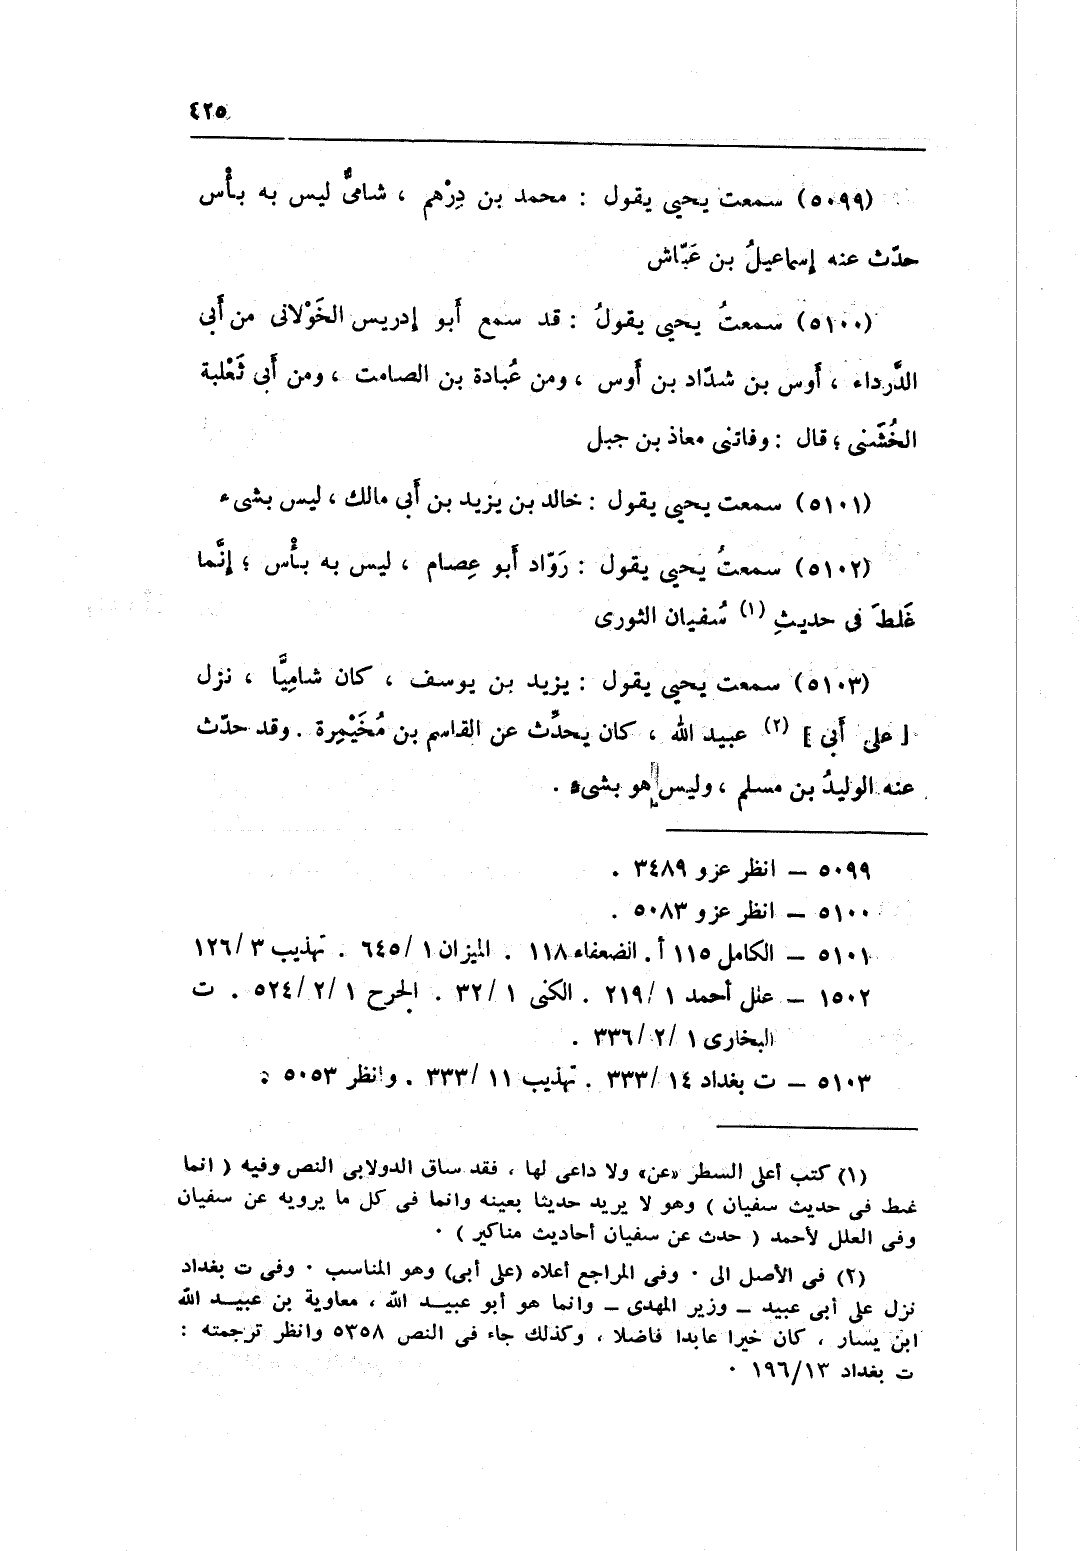 ٤٢٥
(٥٠٩٩) سمعت يحيى يقول : محمد بن دِرْهم ، شامىٌّ ليس به بأْس
حدّث عنه إسماعيلُ بن عَبّاش
(٥١٠٠) سمعتُ يحيى يقولُ : قد سمع أَبو إدريس الخَوْلانى من أَبى
الدَّرداء ، أَوس بن شدّاد بن أَوس ، ومن عُبادة بن الصامت ، ومن أَبى ثَعْلبة
الخُشَنى ؛ قال : وفاتنى معاذ بن جبل
(٥١٠١) سمعت يحيى يقول : خالد بن يزيد بن أَبى مالك ، ليس بشىء
(٥١٠٢) سمعتُ يحيى يقول : رَوّاد أَبو عِصام ، ليس به بأْس ؛ إنَّما
غَلطَ فى حديثِ (١) سُفيان الثورى
(٥١٠٣) سمعت يحيى يقول : يزيد بن يوسف ، كان شامِيًّا ، نزل
[ على أَبى ] (٢) عبيد الله ، كان يحدِّث عن القاسم بن مُخَيْمِرة . وقد حدّث
عنه الوليدُ بن مسلم ، وليس هو بشىء .
٥٠٩٩ – انظر عزو ٣٤٨٩ .
٥١٠٠ – انظر عزو ٥٠٨٣ .
٥١٠١ – الكامل ١١٥ أ . الضعفاء ١١٨ . الميزان ١ /٦٤٥ . تهذيب ٣ /١٢٦
١٥٠٢ – علل أحمد ١ /٢١٩ . الكنى ١ /٣٢ . الجرح ١ /٢ /٥٢٤ . ت
البخارى ١ /٢ /٣٣٦ .
٥١٠٣ – ت بغداد ١٤ /٣٣٣ . تهذيب ١١ /٣٣٣ . وانظر ٥٠٥٣ .
(١) كتب أعلى السطر «عن» ولا داعى لها ، فقد ساق الدولابى النص وفيه ( انما
غبط فى حديث سفيان ) وهو لا يريد حديثا بعينه وانما فى كل ما يرويه عن سفيان
وفى العلل لأحمد ( حدث عن سفيان أحاديث مناكير ) ٠
(٢) فى الأصل الى ٠ وفى المراجع أعلاه (على أبى) وهو المناسب ٠ وفى ت بغداد
نزل على أبى عبيد – وزير المهدى – وانما هو أبو عبيد الله ، معاوية بن عبيد الله
ابن يسار ، كان خيرا عابدا فاضلا ، وكذلك جاء فى النص ٥٣٥٨ وانظر ترجمته :
ت بغداد ١٩٦/١٣ ٠